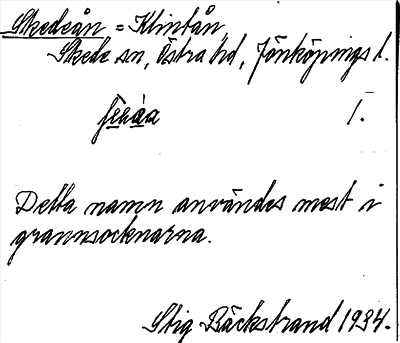 Skedeån = Klintån
Skede sn, Östra hd, Jönköpings l.
I.
Detta namn användes mest i
grannsocknarna.
Stig Bäckstrand 1934.